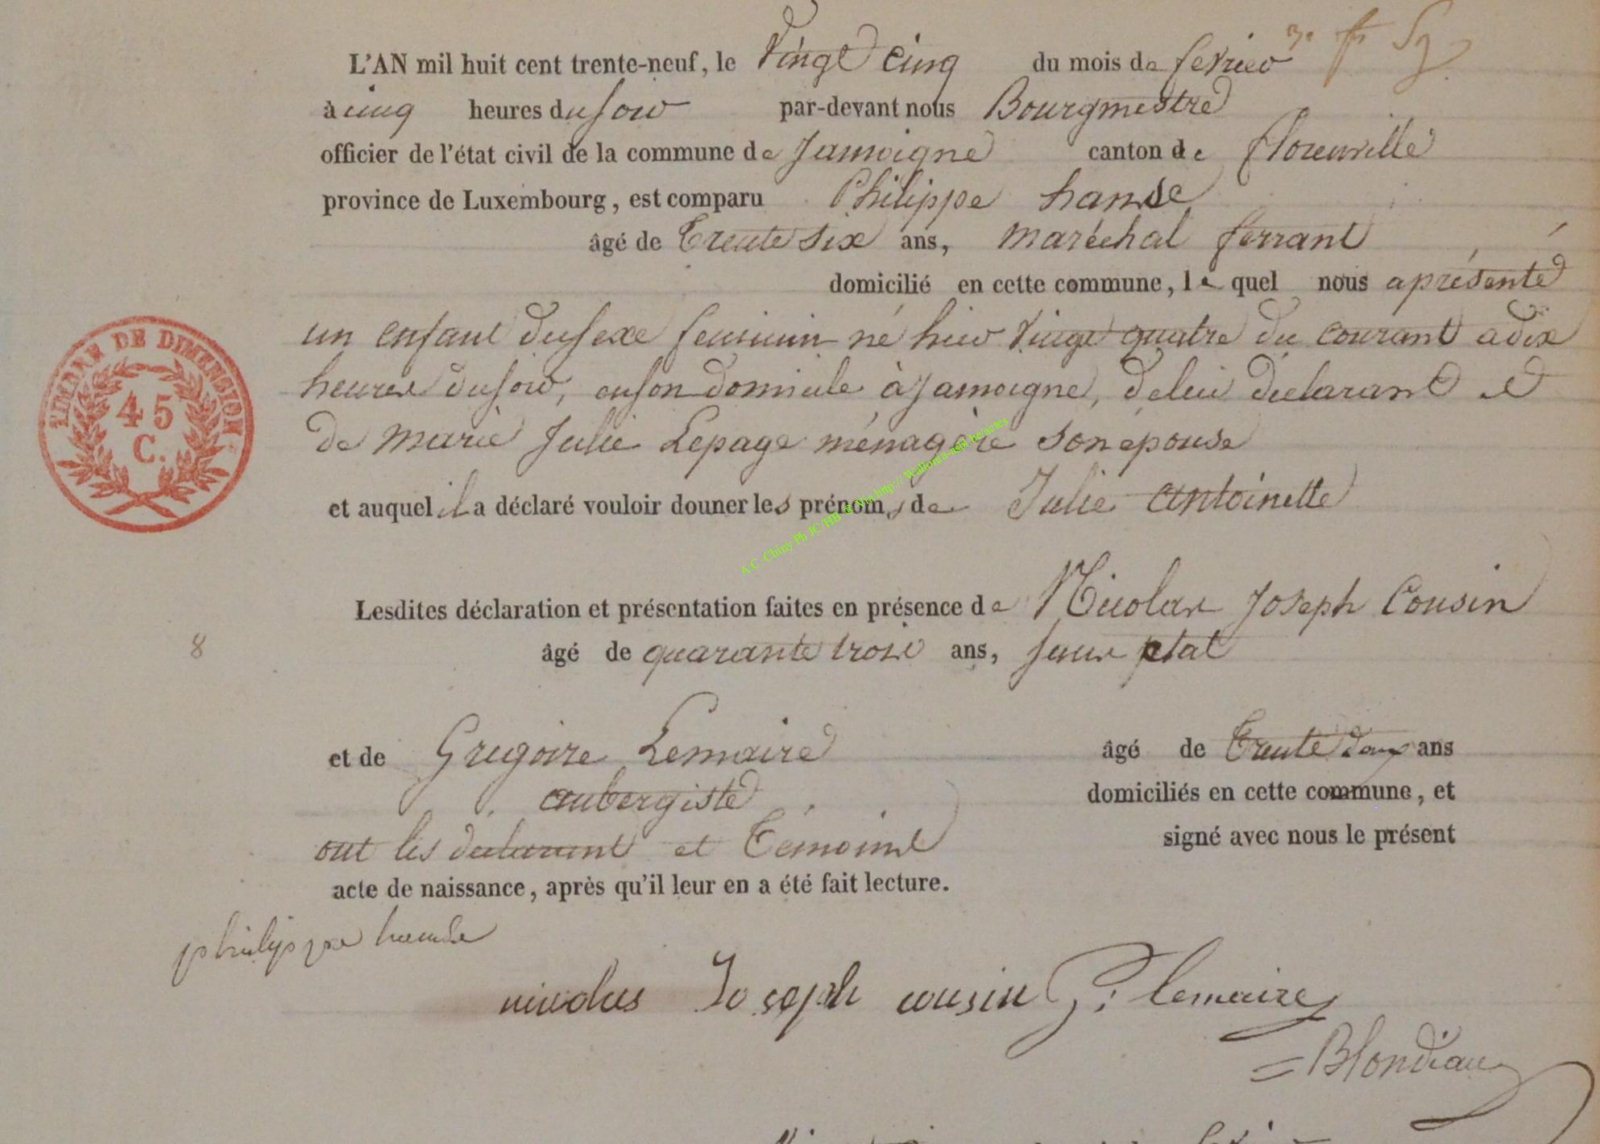 L'AN mil huit cent trente-neuf, le Vingt cinq du mois de fevrier
à cinq heures du soir par-devant nous Bourgmestre
officier de l'état civil de la commune de Jamoigne canton de florenville
province de Luxembourg, est comparu Philippe hanse
âgé de Trente six ans, maréchal ferrant
domicilié en cette commune, le quel nous a présenté
un enfant du sexe feminin né hier vingt quatre du courant a dix
heures du soir, en son domicile à Jamoigne, de lui déclarant et
de marie Julie Lepage ménagère son epouse
et auquel il a déclaré vouloir douner les prénoms de Julie antoinette
Lesdites déclaration et présentation faites en présence de Nicolas Joseph Cousin
8
âgé de quarante trois ans, sans etat
et de Gregoire Lemaire âgé de Trente deux ans
aubergiste domiciliés en cette commune, et
ont les declarant et Témoins signé avec nous le présent
acte de naissance, après qu'il leur en a été fait lecture.
philippe hanse
nicolas Joseph cousin G: lemaire
Blondiau
TIMBRE DE DIMENSION
45
C.